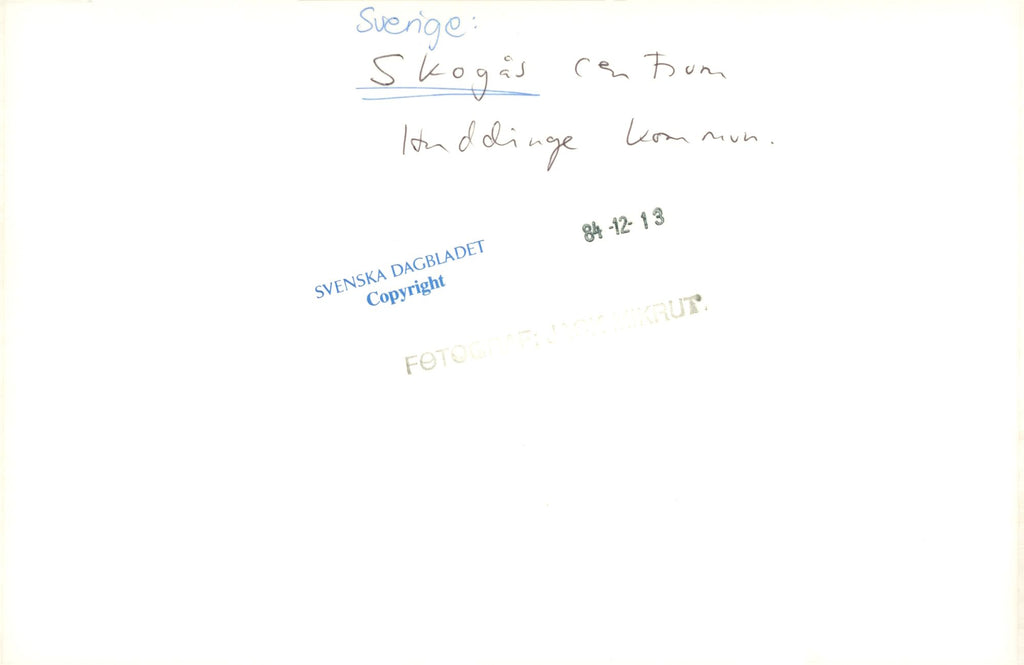 Sverige:
Skogås centrum
Huddinge kommun.
84-12-13
SVENSKA DAGBLADET
Copyright
FOTOGRAF: JACK MIKRUT.